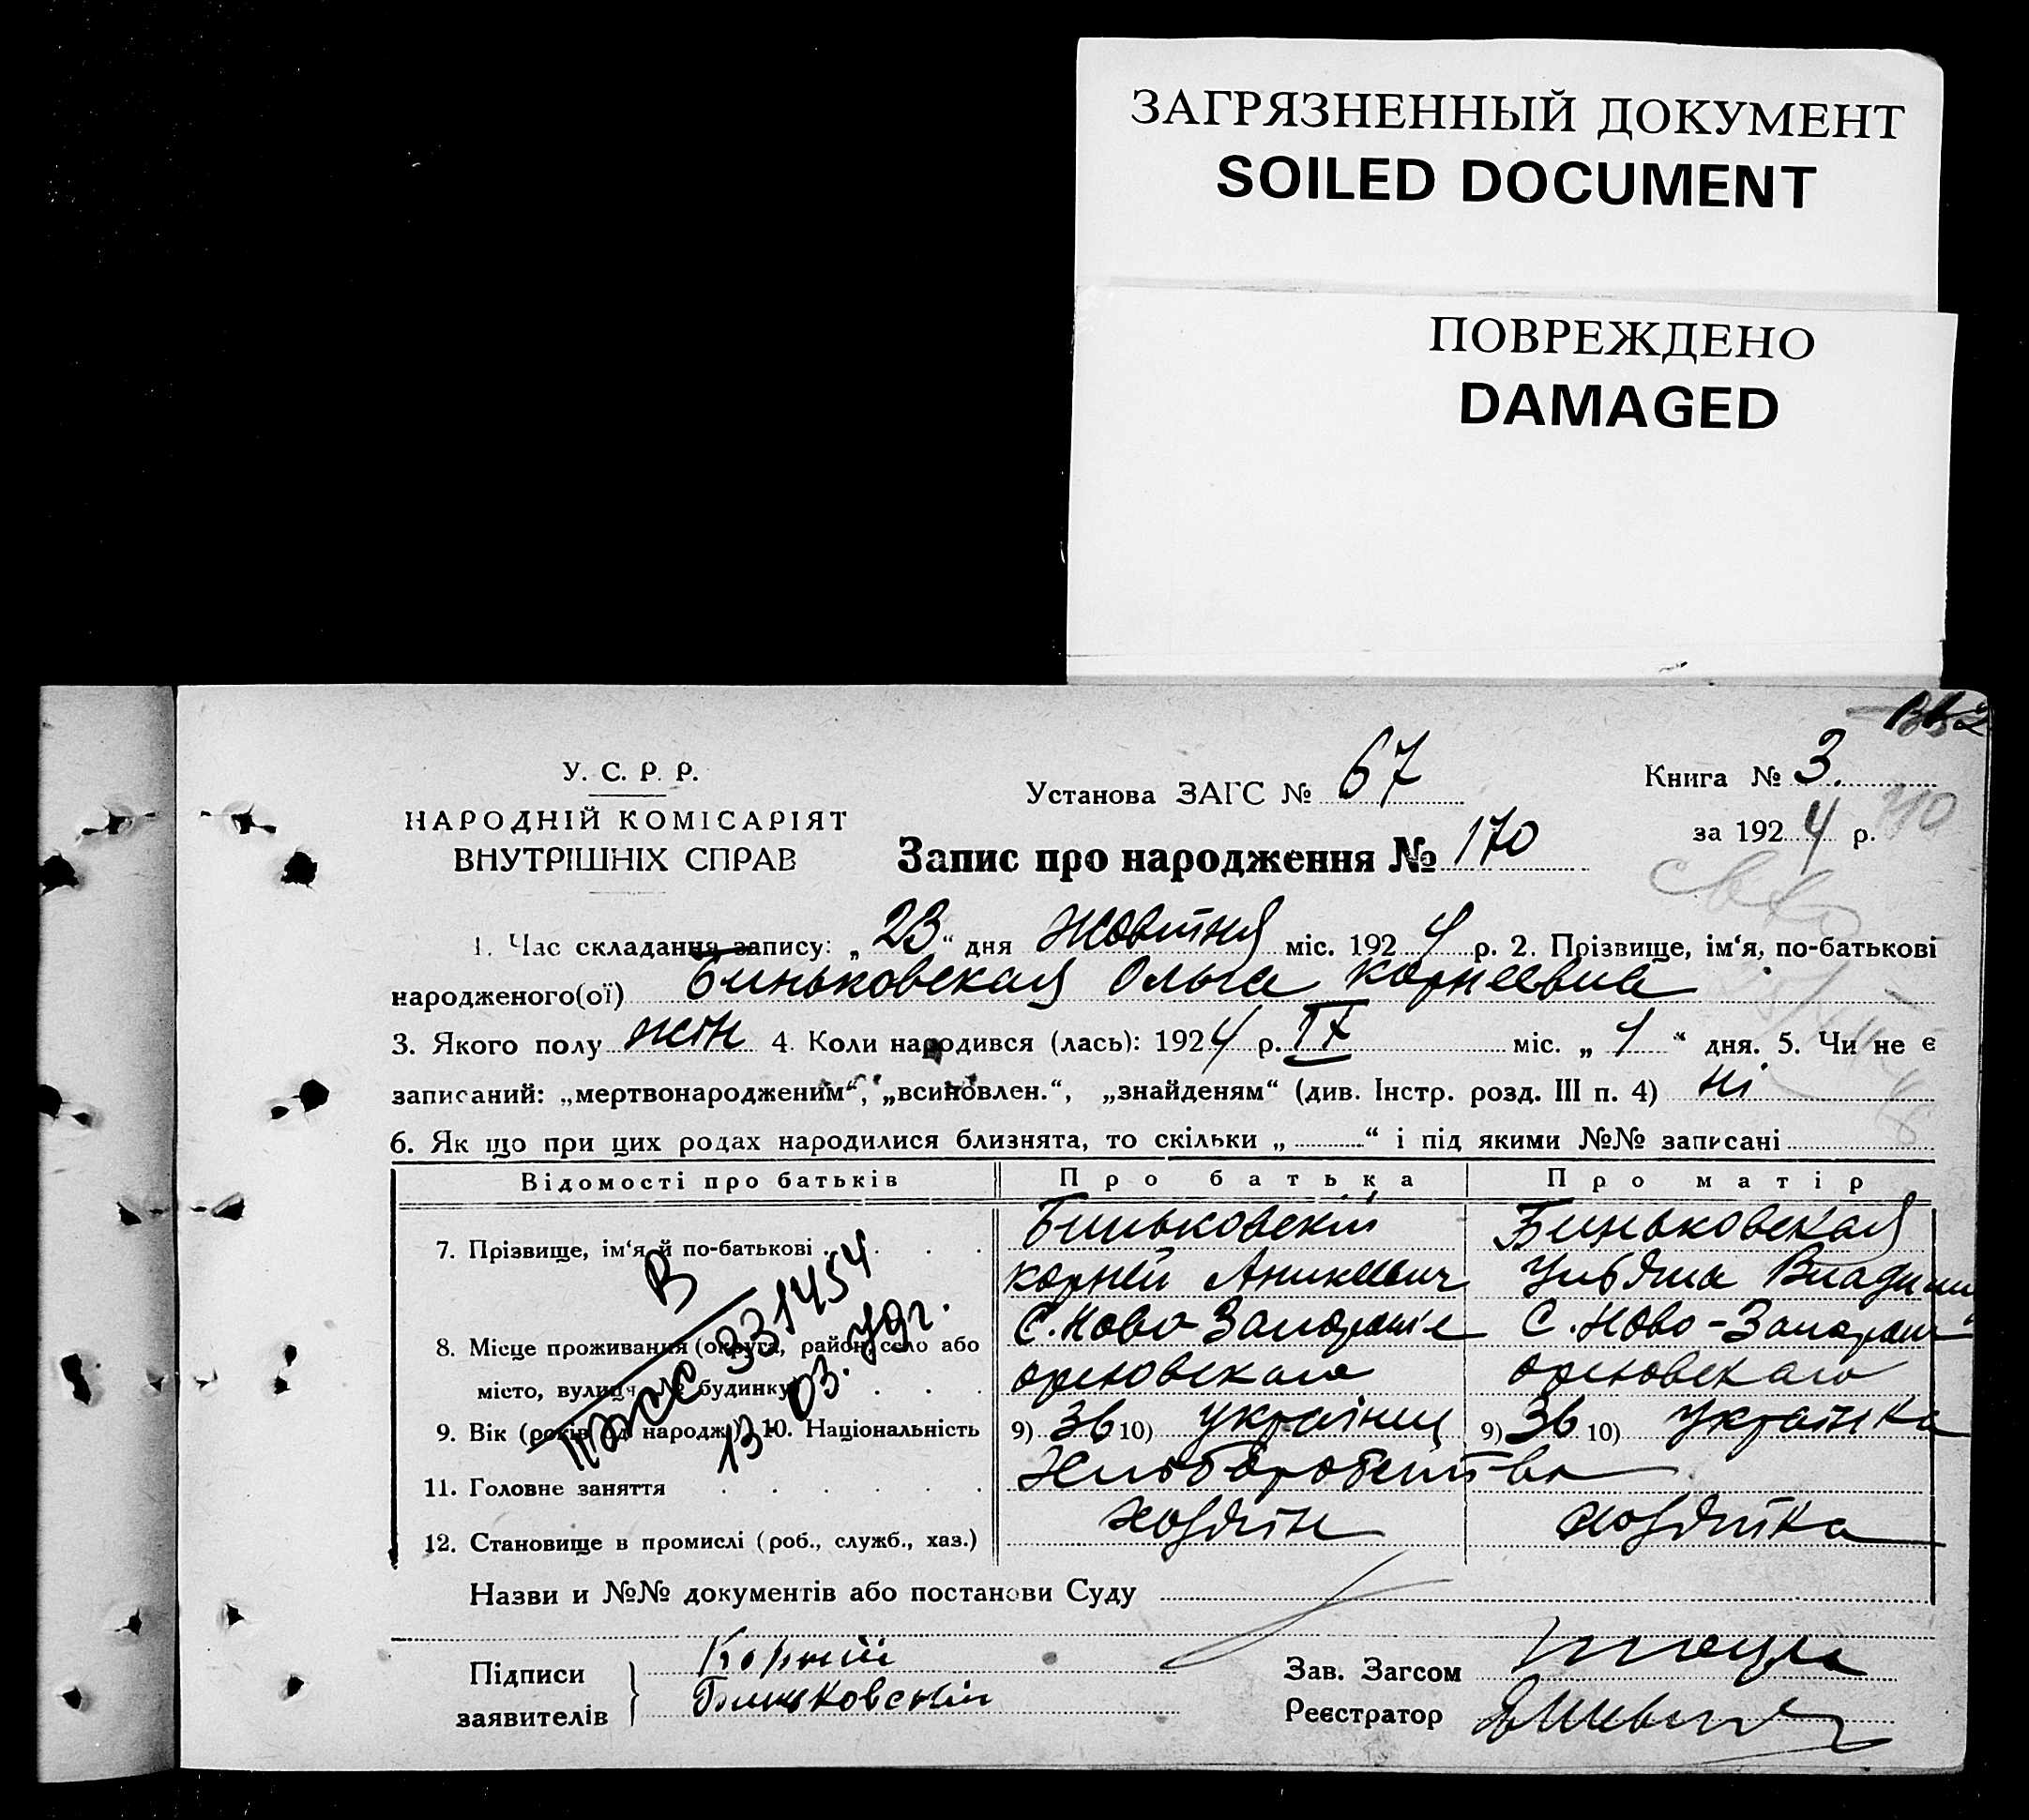 ЗАГРЯЗНЕННЫЙ ДОКУМЕНТ
SOILED DOCUMENT
ПОВРЕЖДЕНО
DAMAGED
У. С. Р. Р.
НАРОДНІЙ КОМІСАРІЯТ
ВНУТРІШНІХ СПРАВ
Установа ЗАГС № 67
Книга № 3.
за 1924 р.
Запис про народження № 170
1. Час складання запису: „23“ дня Жовтня міс. 1924 р. 2. Прізвище, ім‘я, по-батькові
народженого(ої) Биньковская Ольга Корнеевна
3. Якого полу жін 4. Коли народився (лась): 1924 р. IX міс. „1“ дня. 5. Чи не є
записаний: „мертвонародженим“, „всиновлен.“, „знайденям“ (див. Інстр. розд. III п. 4) ні
6. Як що при цих родах народилися близнята, то скільки „ “ і під якими №№ записані
Відомості про батьків Про батька Про матір
7. Прізвище, ім‘я й по-батькові Биньковский Биньковская
Корней Аникеевич Ульяна
8. Місце проживання (округа, район, село або С. Ново-Запоражже С. Ново-
місто, вулиця, № будинку)
9. Вік (років од народж.) 10. Національність 9) 36 10) Українец 9) 36 10) Українка
11. Головне заняття Хлиборобство
12. Становище в промислі (роб., служб., хаз.) хозяїн хозяйка
В
пасс 331454
13. 03. 49г.
Назви и №№ документів або постанови Суду
Підписи заявителів
Корній
Биньковский
Зав. Загсом
Реєстратор